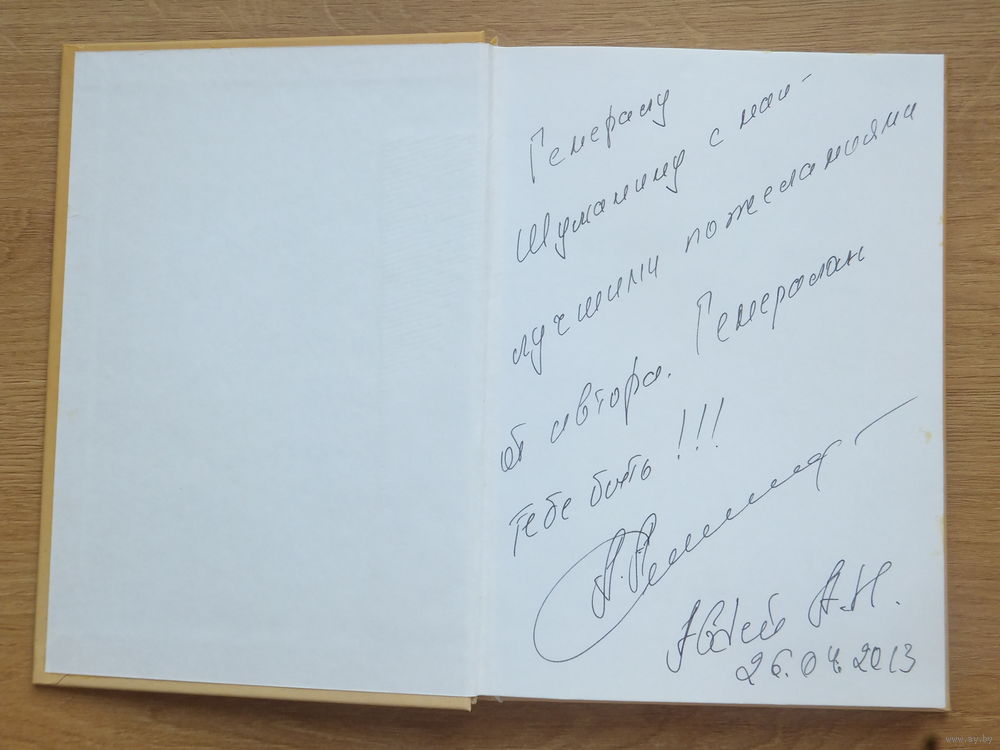 Генералу
Шуманину с наи-
лучшими пожеланиями
от автора. Генералом
тебе быть!!!
Авдей А.Н.
26.04.2013
www.ay.by